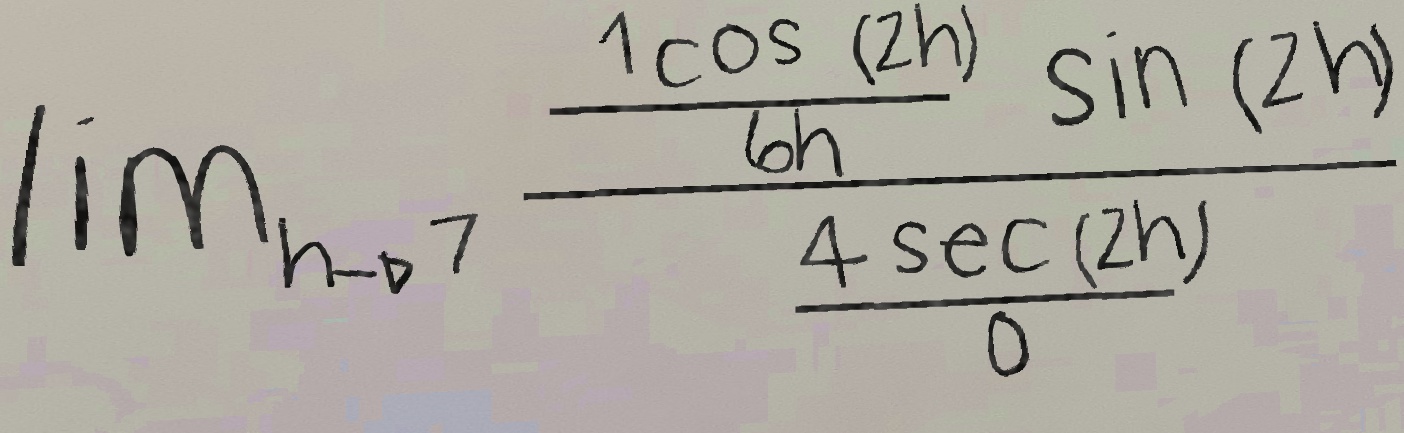 lim_{h→7} \frac{\frac{1cos(2h)}{6h} sin(2h)}{\frac{4sec(2h)}{0}}